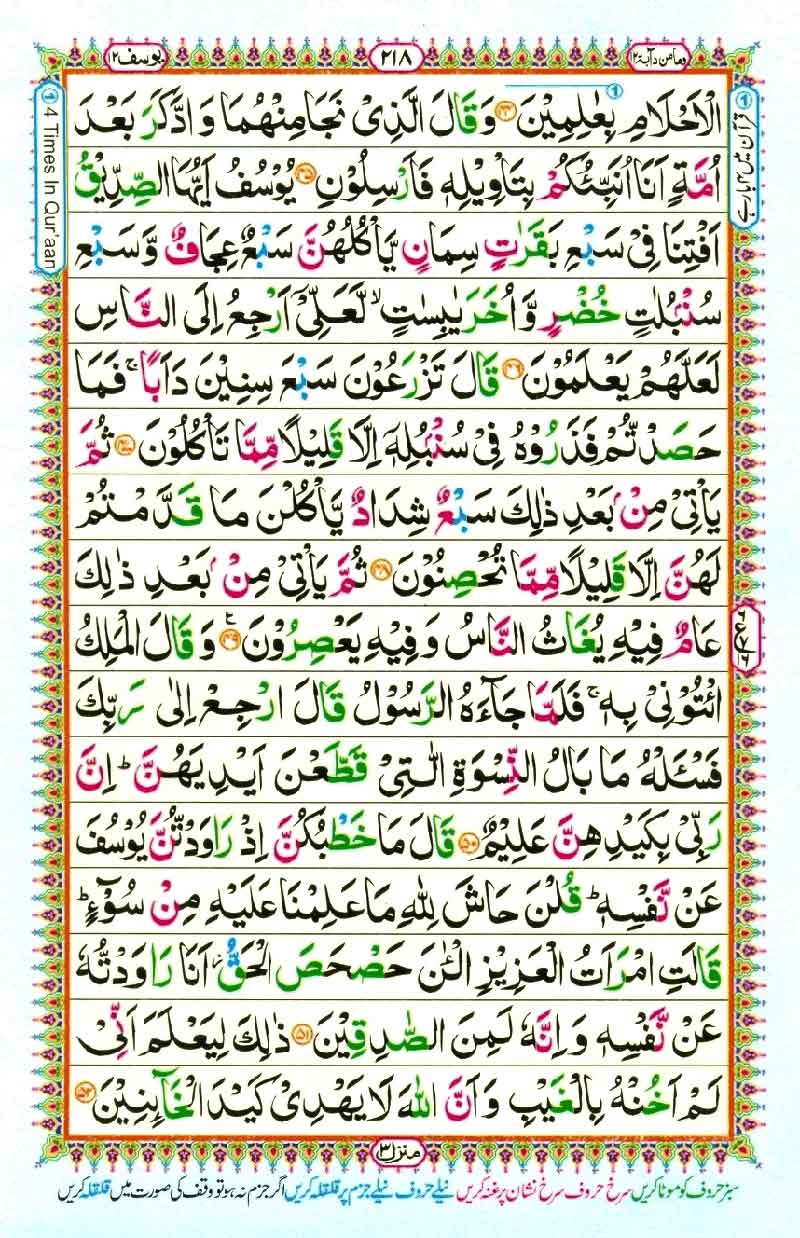 وما من دآبة ١٢
٢١٨
يوسف ١٢
الْاَحْلَامِ بِعٰلِمِيْنَ ۝۴۴ وَقَالَ الَّذِیْ نَجَا مِنْهُمَا وَادَّكَرَ بَعْدَ
اُمَّةٍ اَنَا اُنَبِّئُكُمْ بِتَاْوِيْلِهٖ فَاَرْسِلُوْنِ ۝۴۵ يُوْسُفُ اَيُّهَا الصِّدِّيْقُ
اَفْتِنَا فِیْ سَبْعِ بَقَرٰتٍ سِمَانٍ يَّاْكُلُهُنَّ سَبْعٌ عِجَافٌ وَّسَبْعِ
سُنْۢبُلٰتٍ خُضْرٍ وَّاُخَرَ يٰبِسٰتٍ ۙ لَّعَلِّیْۤ اَرْجِعُ اِلَی النَّاسِ
لَعَلَّهُمْ يَعْلَمُوْنَ ۝۴۶ قَالَ تَزْرَعُوْنَ سَبْعَ سِنِيْنَ دَاَبًا ۚ فَمَا
حَصَدْتُّمْ فَذَرُوْهُ فِیْ سُنْۢبُلِهٖۤ اِلَّا قَلِيْلًا مِّمَّا تَاْكُلُوْنَ ۝۴۷ ثُمَّ
يَاْتِیْ مِنْۢ بَعْدِ ذٰلِكَ سَبْعٌ شِدَادٌ يَّاْكُلْنَ مَا قَدَّمْتُمْ
لَهُنَّ اِلَّا قَلِيْلًا مِّمَّا تُحْصِنُوْنَ ۝۴۸ ثُمَّ يَاْتِیْ مِنْۢ بَعْدِ ذٰلِكَ
عَامٌ فِيْهِ يُغَاثُ النَّاسُ وَفِيْهِ يَعْصِرُوْنَ ۝۴۹ وَقَالَ الْمَلِكُ
ائْتُوْنِیْ بِهٖ ۚ فَلَمَّا جَآءَهُ الرَّسُوْلُ قَالَ ارْجِعْ اِلٰی رَبِّكَ
فَسْـَٔلْهُ مَا بَالُ النِّسْوَةِ الّٰتِیْ قَطَّعْنَ اَيْدِيَهُنَّ ؕ اِنَّ
رَبِّیْ بِكَيْدِهِنَّ عَلِيْمٌ ۝۵۰ قَالَ مَا خَطْبُكُنَّ اِذْ رَاوَدْتُّنَّ يُوْسُفَ
عَنْ نَّفْسِهٖ ؕ قُلْنَ حَاشَ لِلّٰهِ مَا عَلِمْنَا عَلَيْهِ مِنْ سُوْٓءٍ ؕ
قَالَتِ امْرَاَتُ الْعَزِيْزِ الْـٰٔنَ حَصْحَصَ الْحَقُّ ؗ اَنَا رَاوَدْتُّهٗ
عَنْ نَّفْسِهٖ وَاِنَّهٗ لَمِنَ الصّٰدِقِيْنَ ۝۵۱ ذٰلِكَ لِيَعْلَمَ اَنِّیْ
لَمْ اَخُنْهُ بِالْغَيْبِ وَاَنَّ اللّٰهَ لَا يَهْدِیْ كَيْدَ الْخَآئِنِيْنَ ۝۵۲
منزل ٣
سبز حروف کو موٹا کریں سرخ حروف سرخ نشان پر غنہ کریں نیلے حروف نیلے جزم پر قلقلہ کریں اگر جزم نہ ہو تو وقف کی صورت میں قلقلہ کریں
قرآن میں ۴ بار ہے
4 Times In Qur'aan